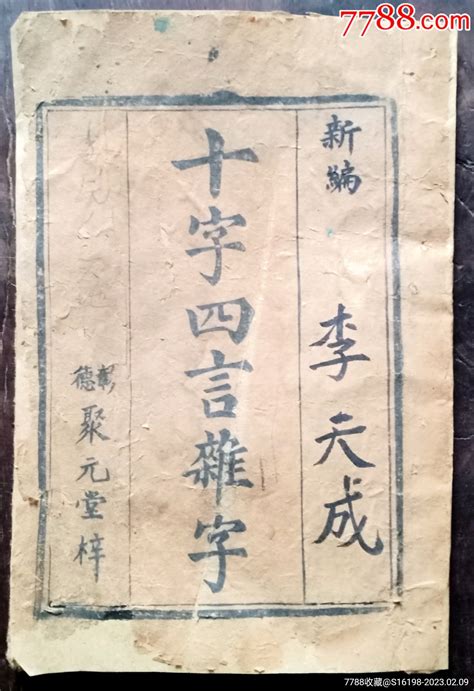 7788.com
新編
李天成
十字四言雜字
彰德
聚元堂梓
7788收藏@S16198-2023.02.09